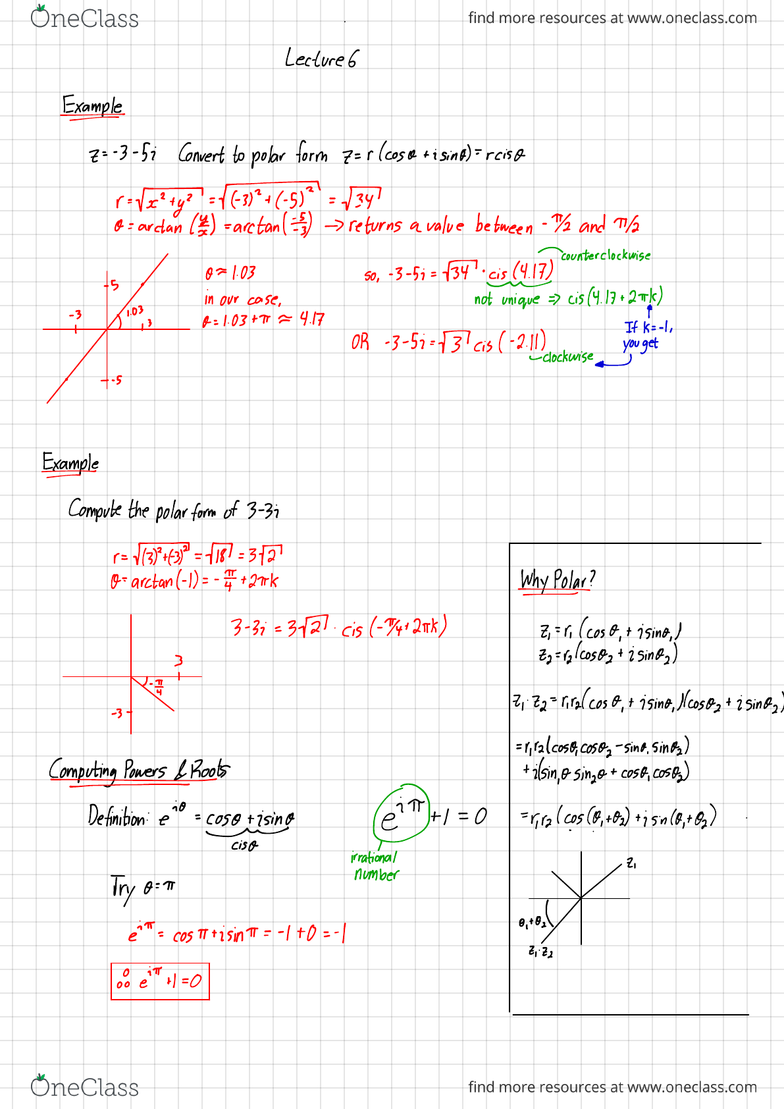 OneClass
find more resources at www.oneclass.com
Lecture 6
Example
z=-3-5i Convert to polar form z=r(cosθ+isinθ)=rcisθ
r=√x²+y² =√(-3)²+(-5)² = √34
θ=arctan(y/x)=arctan(-5/-3) → returns a value between -π/2 and π/2
counterclockwise
θ≈1.03
so, -3-5i=√34·cis(4.17)
5
in our case,
not unique ⇒ cis(4.17+2πk)
-3
1.03
3
θ=1.03+π≈4.17
If k=-1,
you get
OR -3-5i=√3 cis(-2.11)
clockwise
-5
Example
Compute the polar form of 3-3i
r=√(3)²+(-3)² =√18=3√2
θ=arctan(-1)=-π/4+2πk
3-3i=3√2·cis(-π/4+2πk)
3
-π/4
-3
Why Polar?
z₁=r₁(cosθ₁+isinθ₁)
z₂=r₂(cosθ₂+isinθ₂)
z₁·z₂=r₁r₂(cosθ₁+isinθ₁)(cosθ₂+isinθ₂)
=r₁r₂(cosθ₁cosθ₂-sinθ₁sinθ₂)
+i(sin₁θsin₂θ+cosθ₁cosθ₂)
=r₁r₂(cos(θ₁+θ₂)+isn(θ₁+θ₂)
z₁
θ₁+θ₂
z₁·z₂
Computing Powers & Roots
Definition: e^iθ = cosθ+isinθ
cisθ
e^iπ+1=0
irrational
number
Try θ=π
e^iπ=cosπ+isinπ=-1+0=-1
∴ e^iπ+1=0
OneClass
find more resources at www.oneclass.com